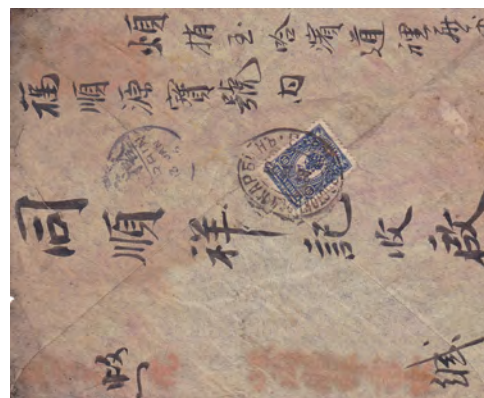 煩捎至哈濱道裡
福順源寶號內
同順祥記收啟
緘